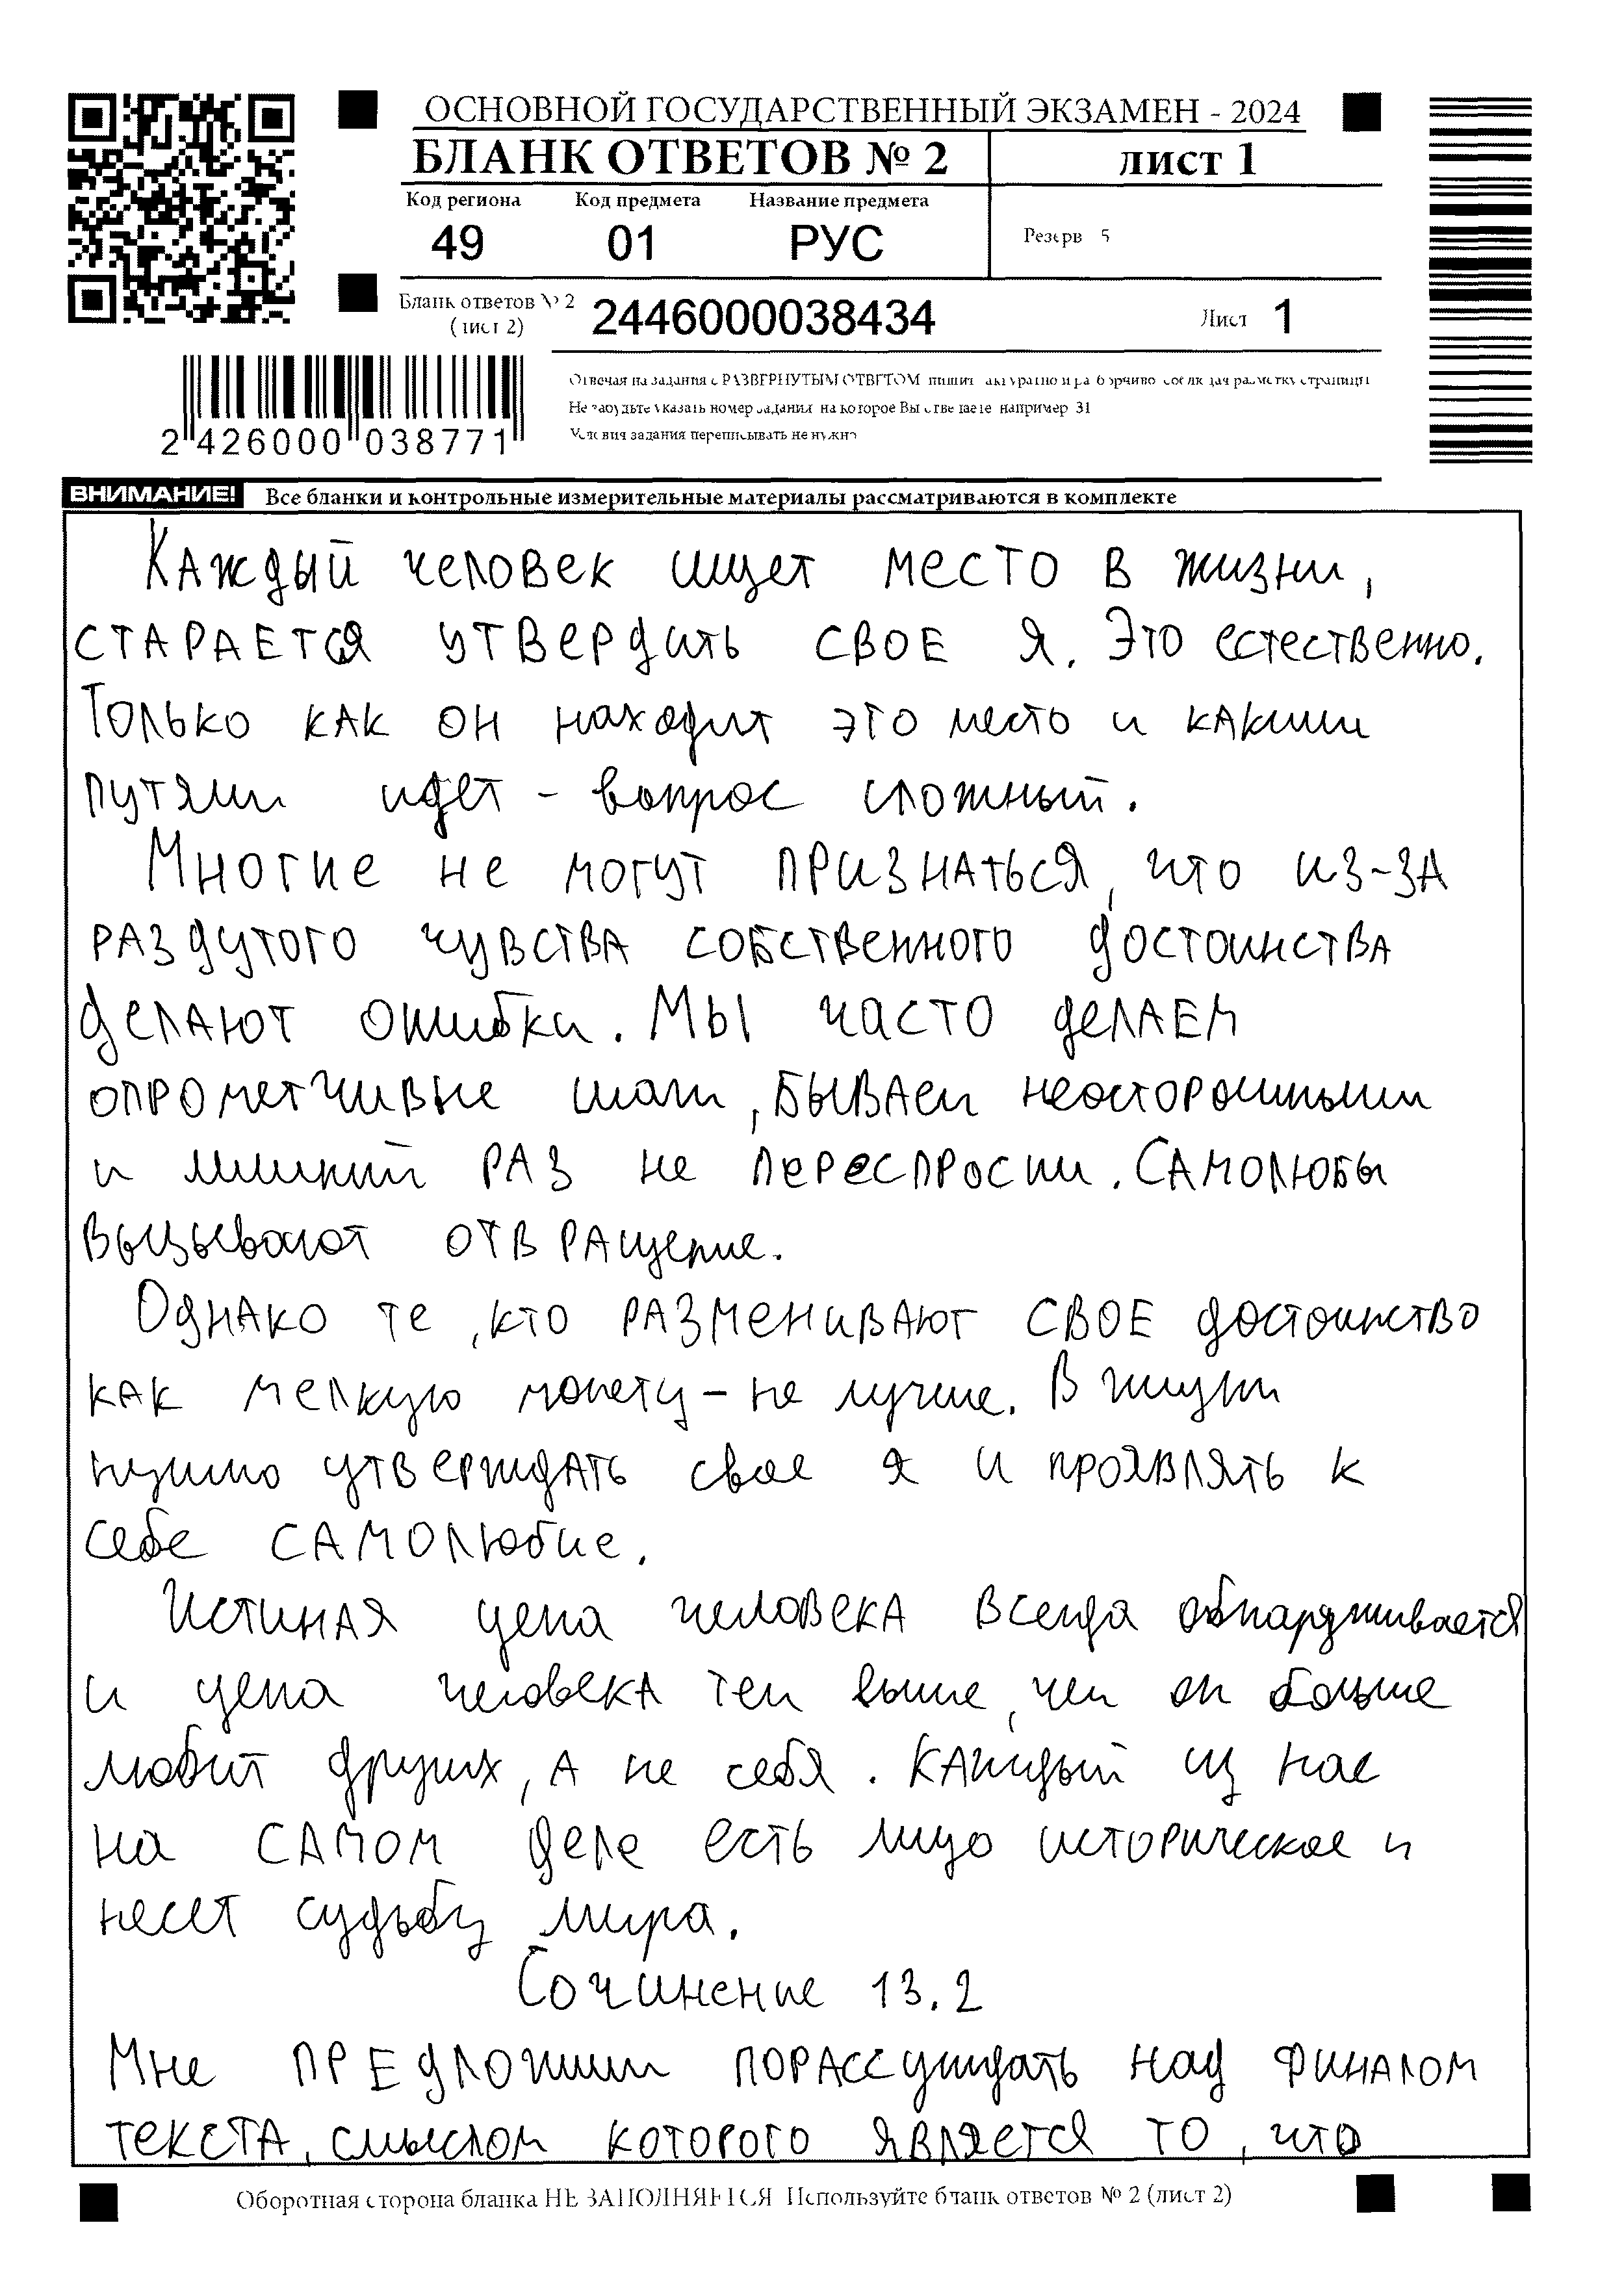 ОСНОВНОЙ ГОСУДАРСТВЕННЫЙ ЭКЗАМЕН - 2024
БЛАНК ОТВЕТОВ № 2
лист 1
Код региона Код предмета Название предмета
49 01 РУС
Резерв 5
Бланк ответов № 2
(лист 2)
2446000038434
Лист 1
Отвечая на задания с РАЗВЕРНУТЫМ ОТВЕТОМ пишите аккуратно и разборчиво, соблюдая разметку страницы
Не забудьте указать номер задания на которое Вы отвечаете например 31
Условия задания переписывать не нужно
2 426000 038771
ВНИМАНИЕ! Все бланки и контрольные измерительные материалы рассматриваются в комплекте
Каждый человек ищет место в жизни,
старается утвердить свое я. Это естественно.
Только как он находит это место и какими
путями идет - вопрос сложный.
Многие не могут признаться, что из-за
раздутого чувства собственного достоинства
делают ошибки. Мы часто делаем
опрометчивые шаги, бываем неосторожными
и лишний раз не переспросим. Самолюбы
вызывают отвращение.
Однако те, кто разменивают свое достоинство
как мелкую монету - не лучше. В жизни
нужно утверждать свое я и проявлять к
себе самолюбие.
Истиная цена человека всегда обнардживается
и цена человека тем выше, чем он больше
любит других, а не себя. Каждый из нас
на самом деле есть лицо историческое и
несет судьбу мира.
Сочинение 13.2
Мне предложили порассуждать над финалом
текста, смыслом которого является то, что
Оборотная сторона бланка НЕ ЗАПОЛНЯЕТСЯ Используйте бланк ответов № 2 (лист 2)